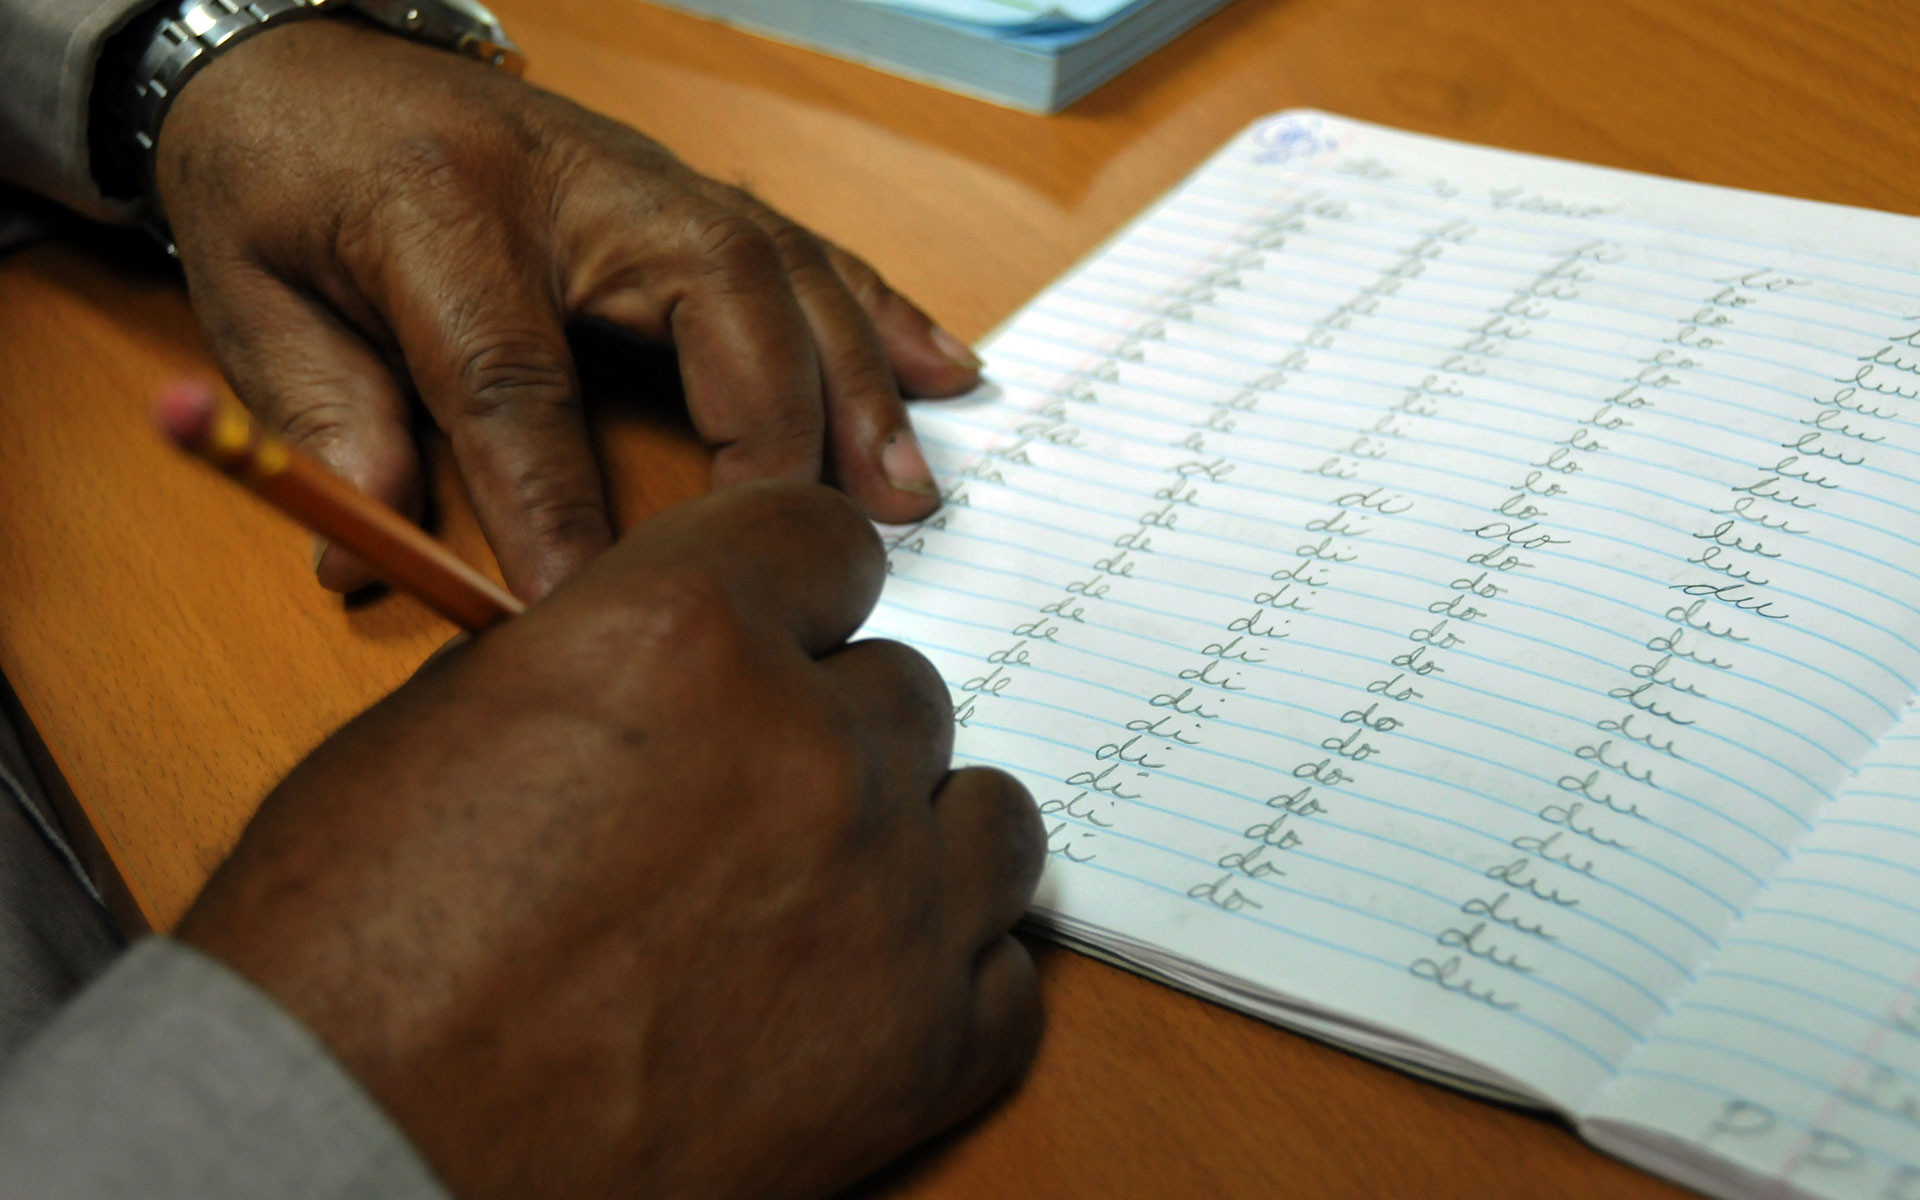 la le li lo
la le li lo
la le li lo lu
la le li lo lu
la le li lo lu
la le li lo lu
la le li lo lu
la le li lo lu
la le li lo lu
la le li lo lu
la le li lo lu
la le li lo lu
da de di do du
da de di do du
da de di do du
da de di do du
da de di do du
da de di do du
de di do du
de di do du
de di do du
de di do du
de di do du
di do du
di do du
di do du
P P